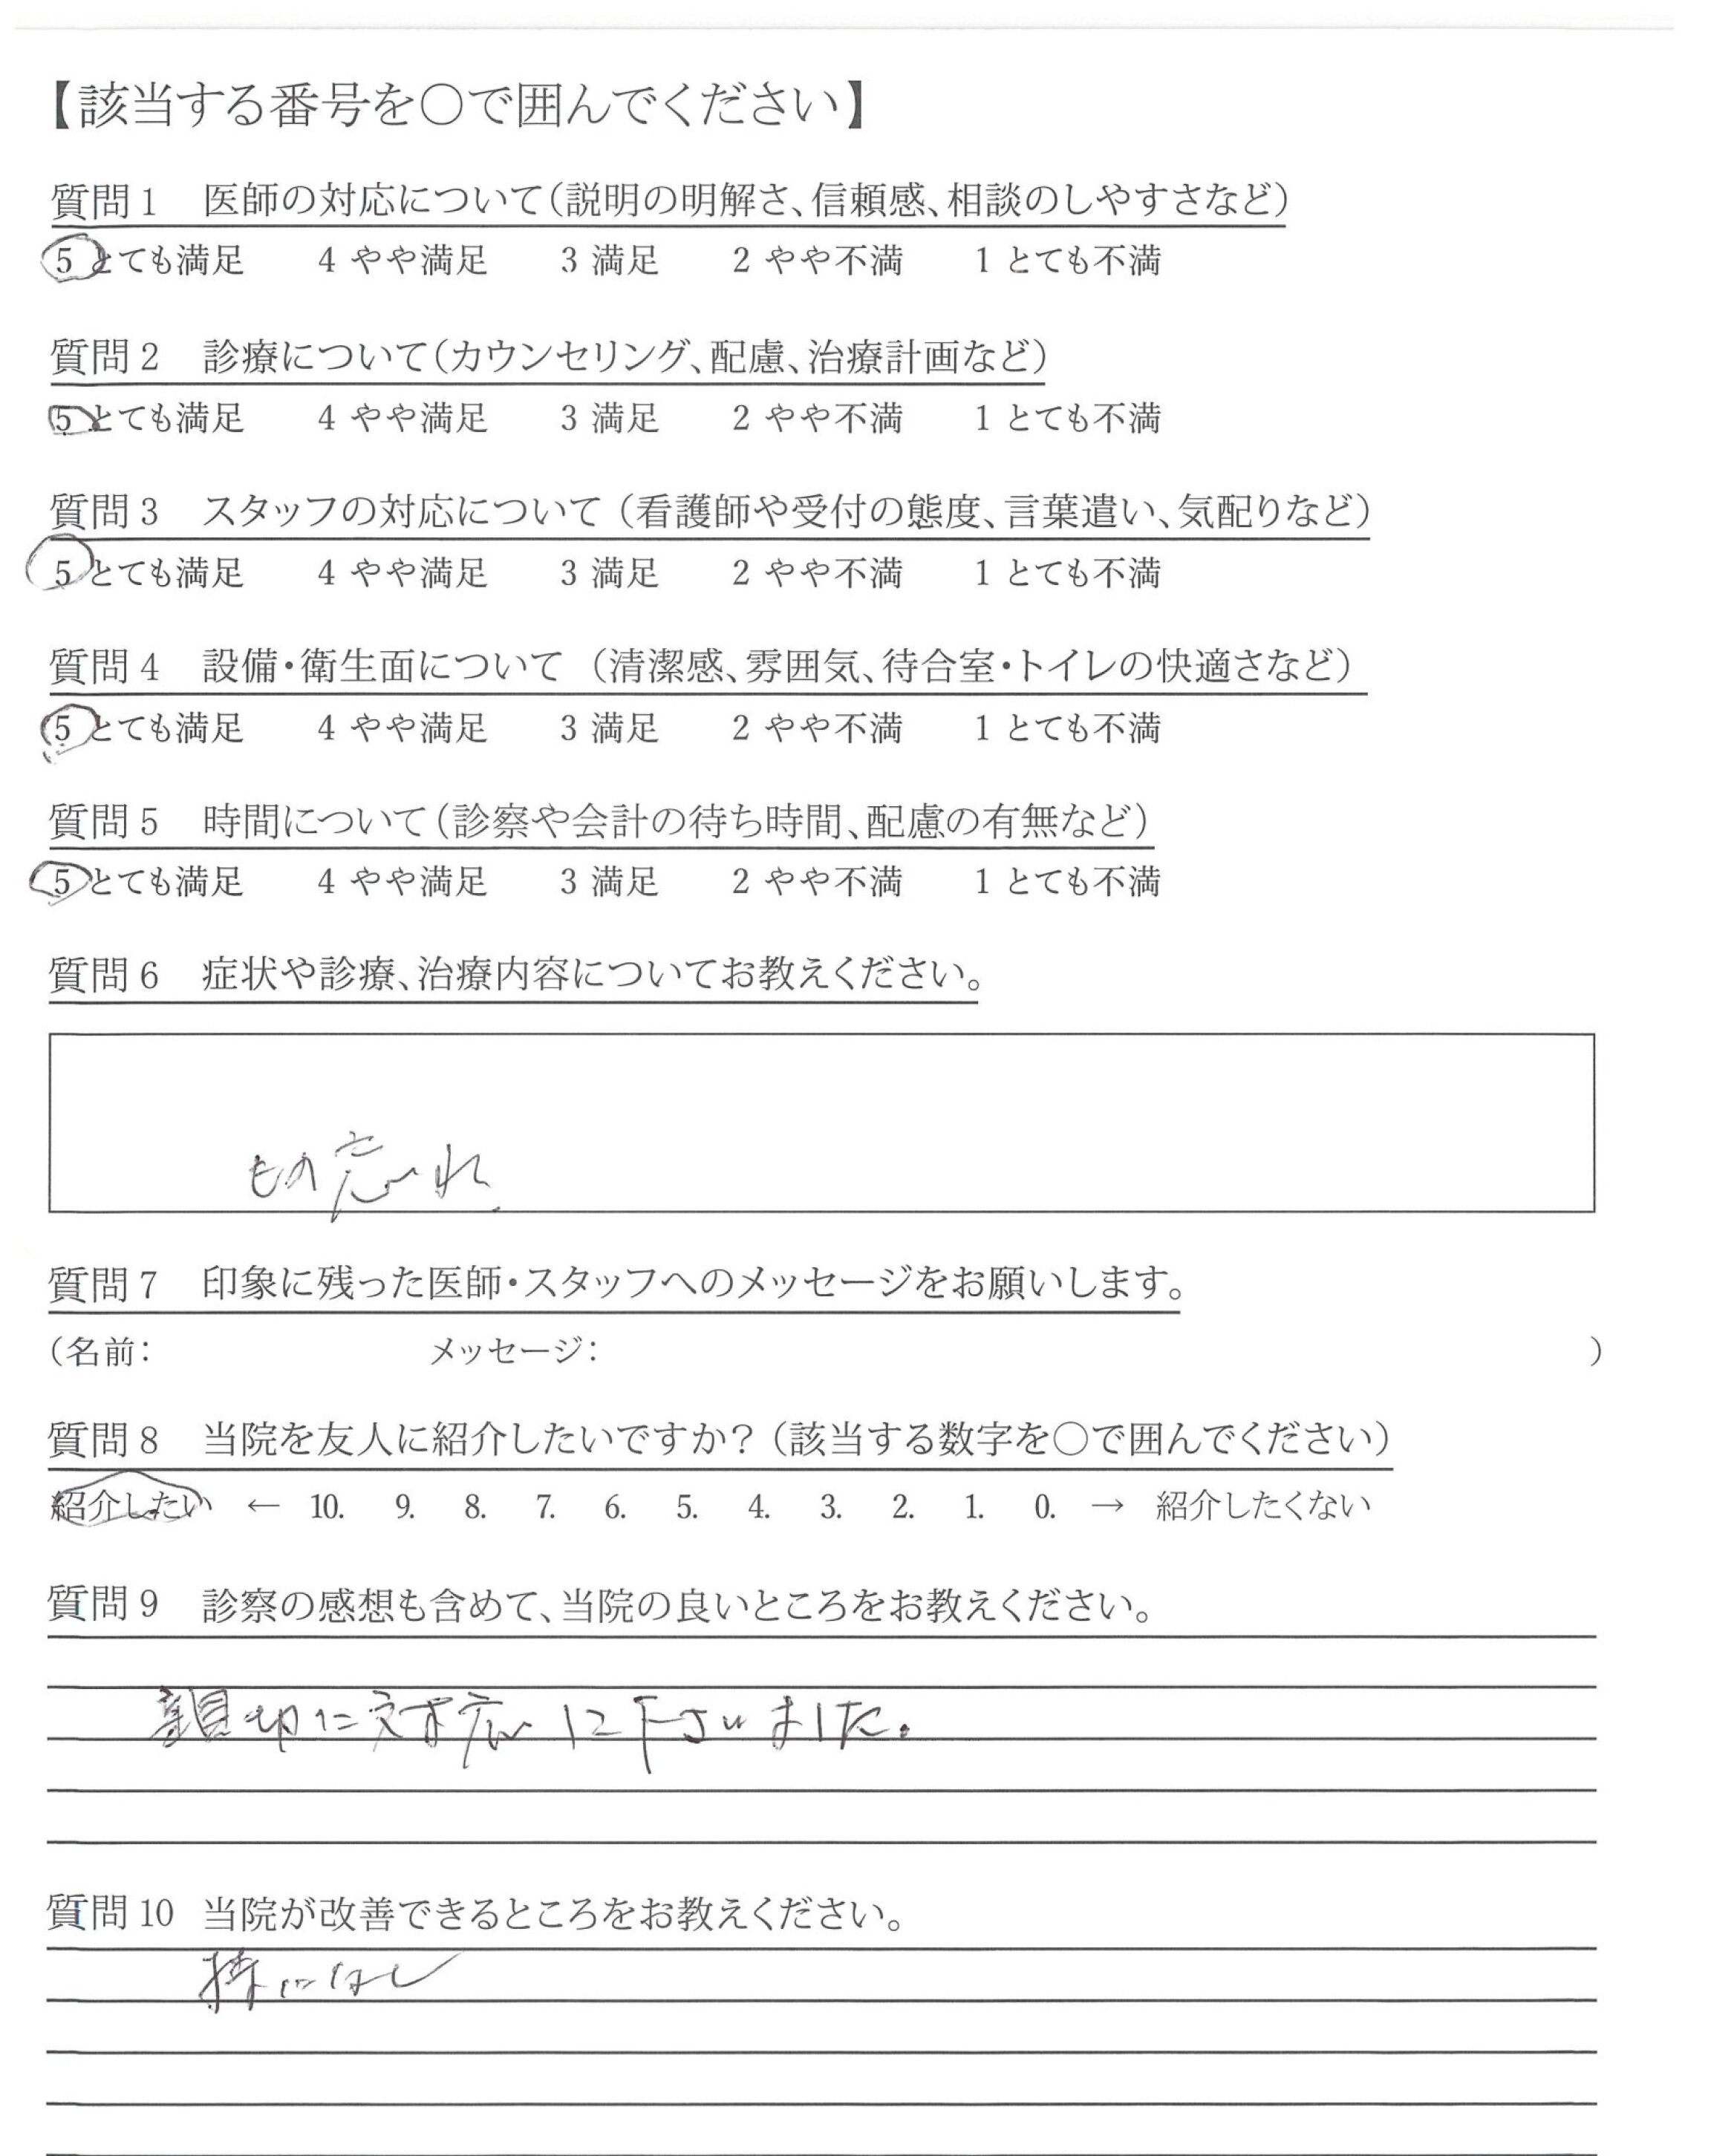 【該当する番号を○で囲んでください】
質問1 医師の対応について(説明の明解さ、信頼感、相談のしやすさなど)
5 とても満足 4 やや満足 3 満足 2 やや不満 1 とても不満
質問2 診療について(カウンセリング、配慮、治療計画など)
5 とても満足 4 やや満足 3 満足 2 やや不満 1 とても不満
質問3 スタッフの対応について(看護師や受付の態度、言葉遣い、気配りなど)
5 とても満足 4 やや満足 3 満足 2 やや不満 1 とても不満
質問4 設備・衛生面について(清潔感、雰囲気、待合室・トイレの快適さなど)
5 とても満足 4 やや満足 3 満足 2 やや不満 1 とても不満
質問5 時間について(診察や会計の待ち時間、配慮の有無など)
5 とても満足 4 やや満足 3 満足 2 やや不満 1 とても不満
質問6 症状や診療、治療内容についてお教えください。
もの忘れ
質問7 印象に残った医師・スタッフへのメッセージをお願いします。
(名前: メッセージ: )
質問8 当院を友人に紹介したいですか?(該当する数字を○で囲んでください)
紹介したい ← 10. 9. 8. 7. 6. 5. 4. 3. 2. 1. 0. → 紹介したくない
質問9 診察の感想も含めて、当院の良いところをお教えください。
親切に対応して下さいました。
質問10 当院が改善できるところをお教えください。
特になし